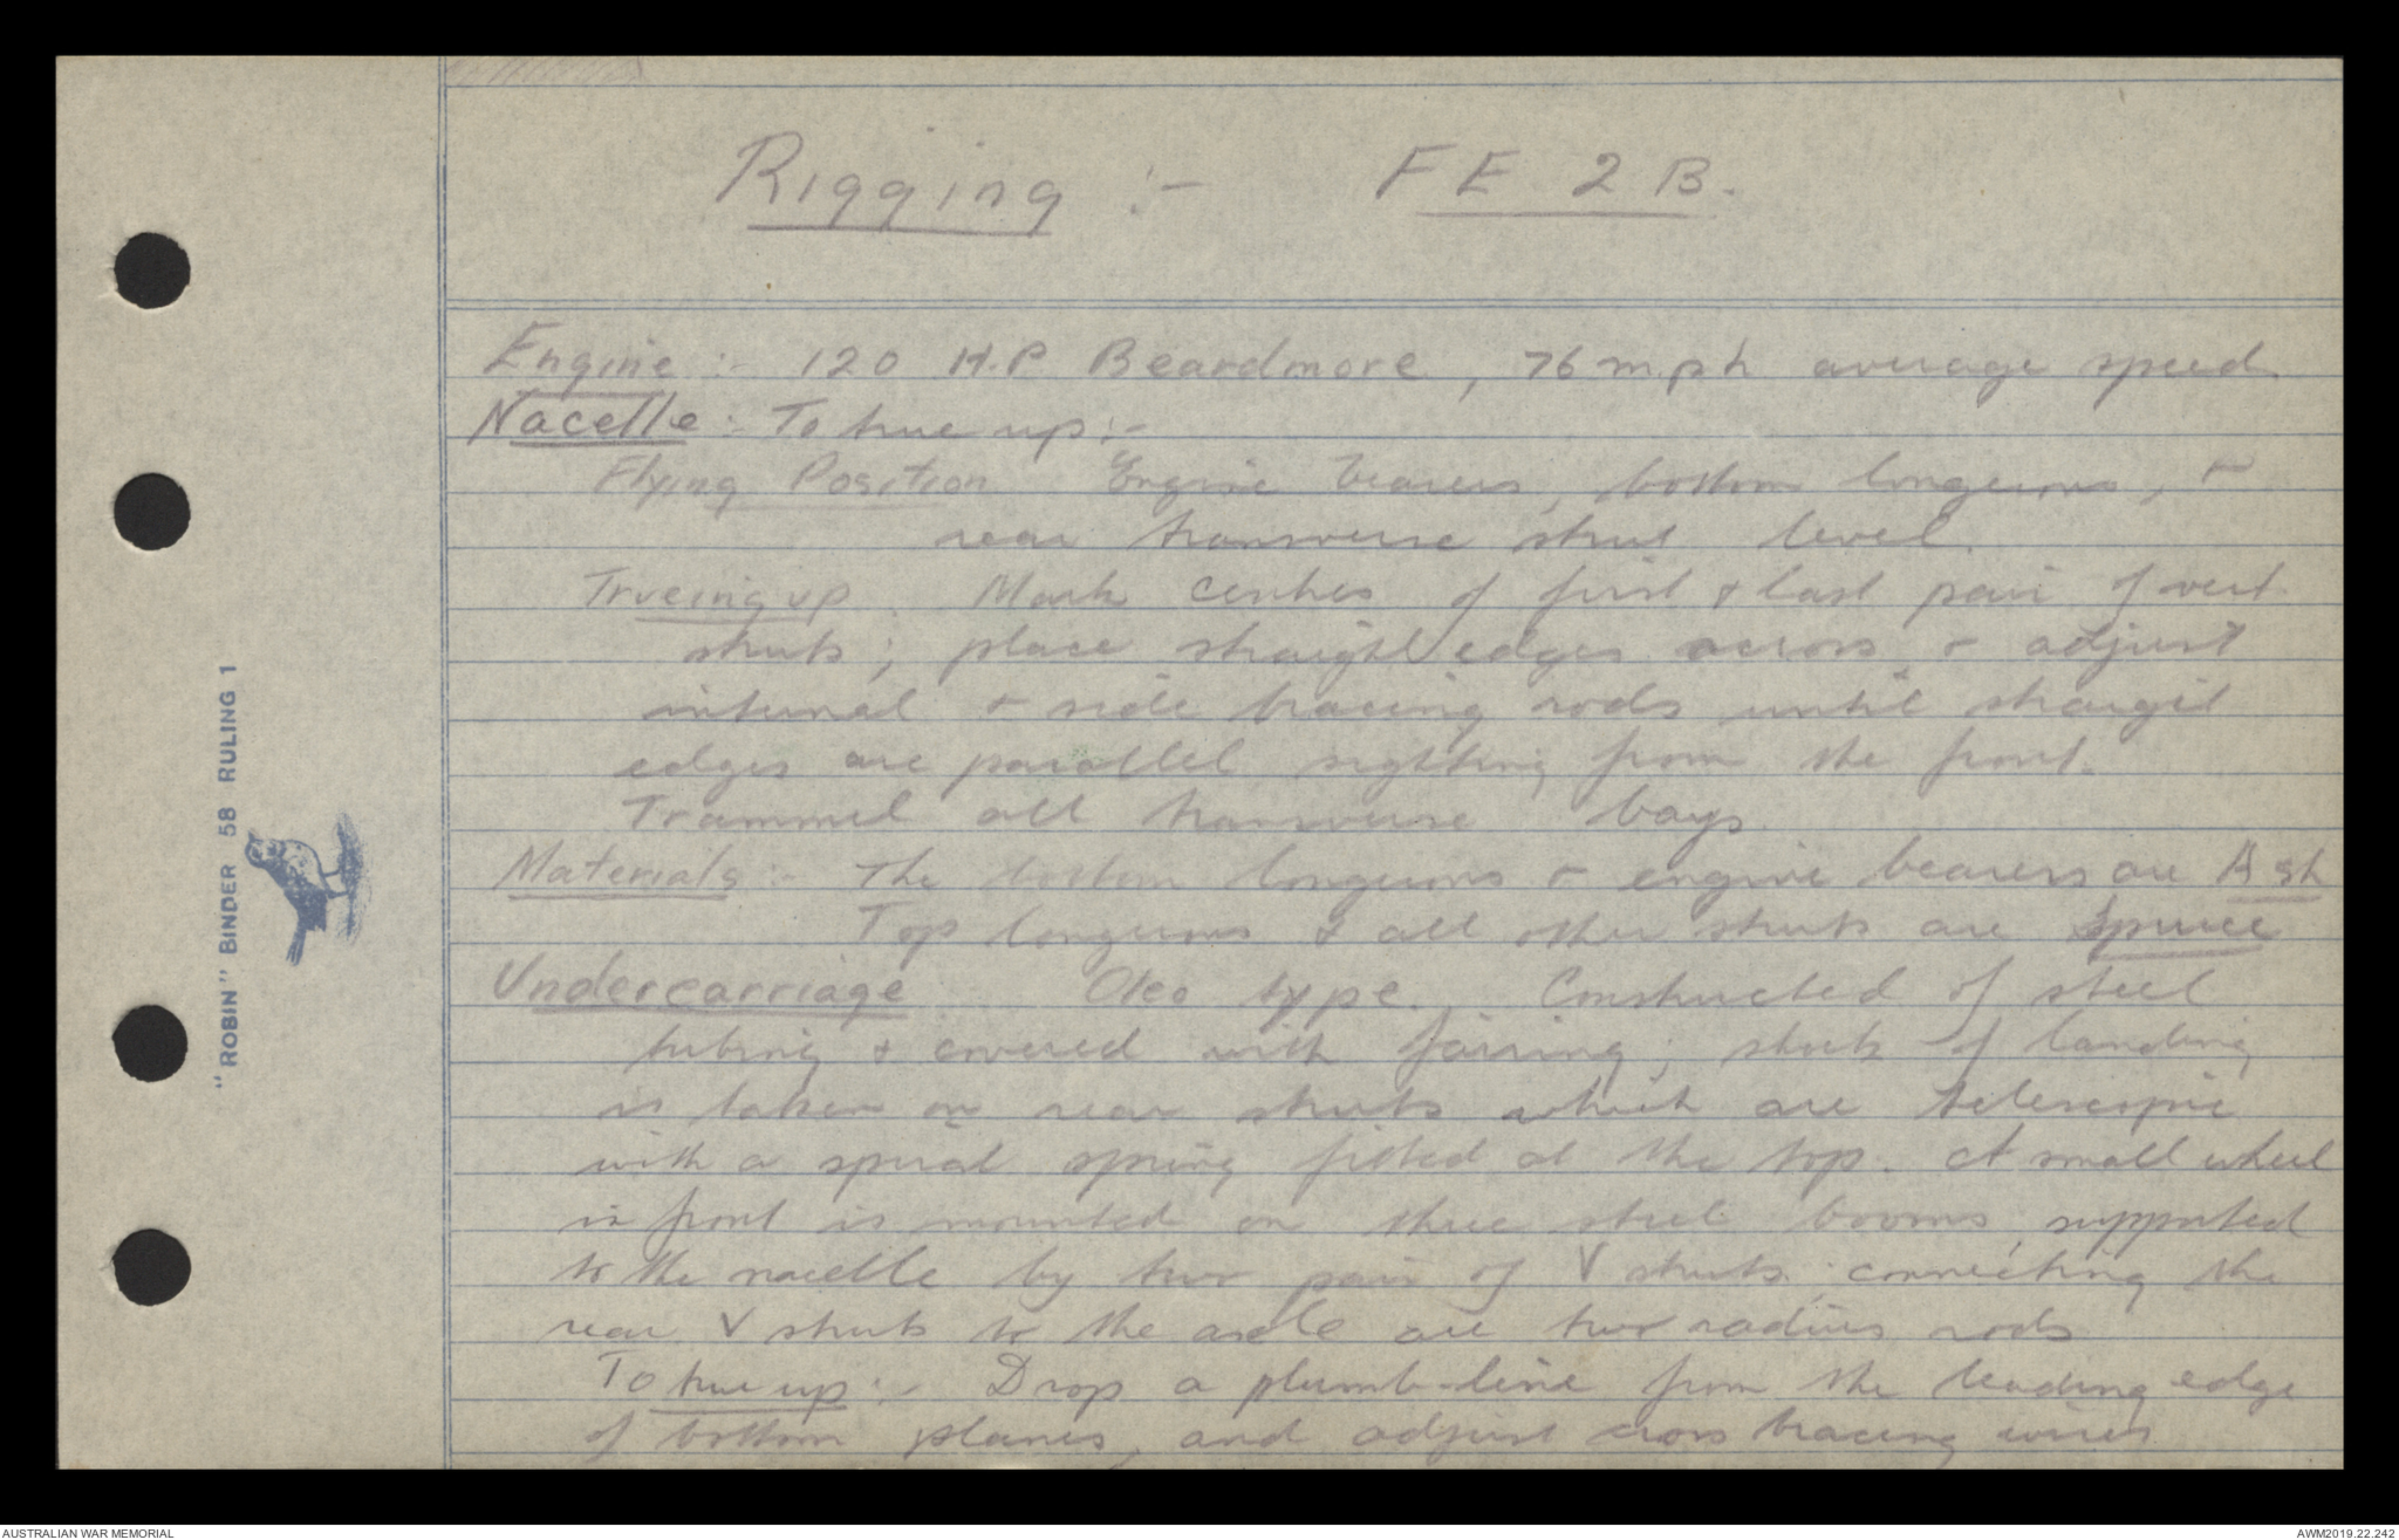 Rigging :- FE 2B.
Engine :- 120 H.P Beardmore, 76 m.p.h average speed.
Nacelle :- To true up :-
Flying Position Engine bearers, bottom longerons, &
rear transverse strut level.
Trueing up. Mark centres of first & last pair of vert.
struts; place straight edges across, & adjust
internal & side bracing rods until straigt
edges are parallel sighting from the front.
Trammel all transverse bays.
Materials :- The bottom longerons & engine bearers are Ash
Top longerons & all other struts are Spruce
Undercarriage Oleo type. Constructed of steel
tubing & covered with fairing; shock of landing
is taken on rear struts which are telescopic
with a spiral spring fitted at the top. A small wheel
in front is mounted on three steel booms, supported
to the nacelle by two pair of V struts; connecting the
rear V struts to the axle are two radius rods
To true up :- Drop a plumb-line from the leading edge
of bottom planes, and adjust cross bracing wires
"ROBIN" BINDER 58 RULING 1
AUSTRALIAN WAR MEMORIAL
AWM2019.22.242